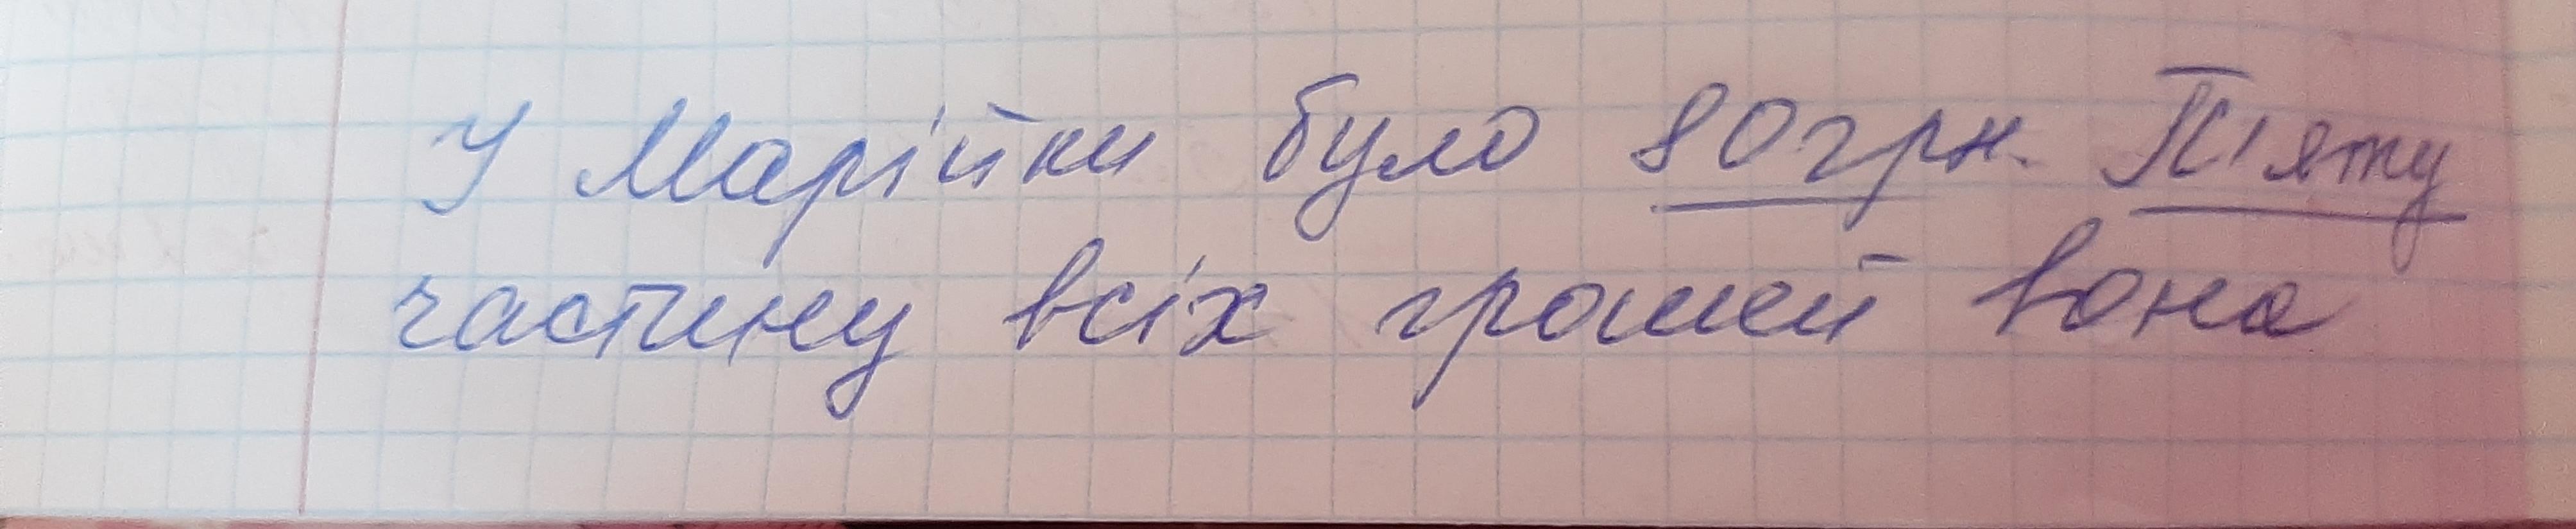 У Марійки було 80грн. П'яту
частину всіх грошей вона